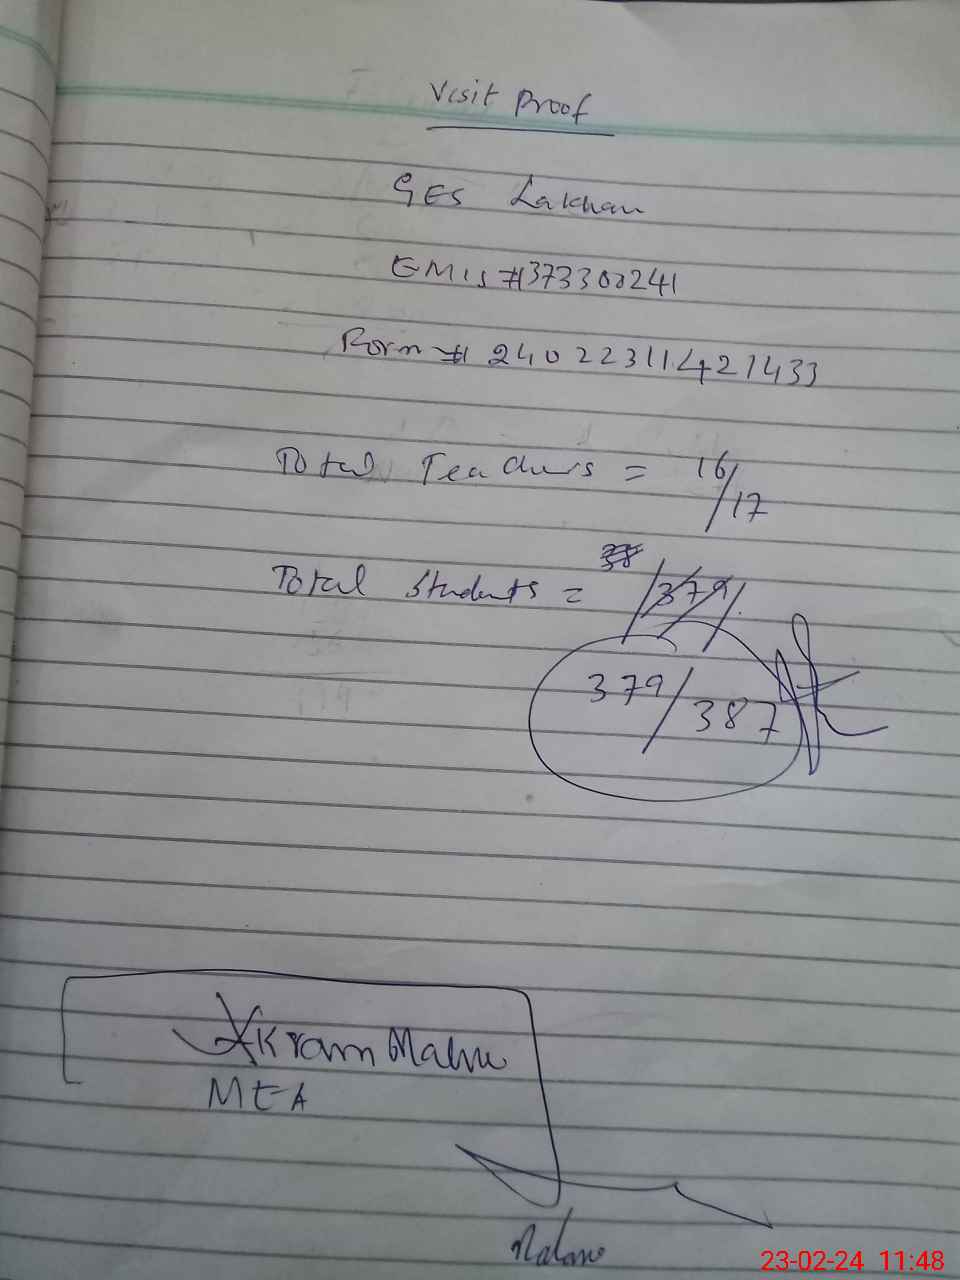 Visit Proof
GES Lakhan
EMIS #373300241
Form # 24022311421433
Total Teachers = 16/17
Total Students = 38 /379/
379/387
Akram
MEA
23-02-24 11:48